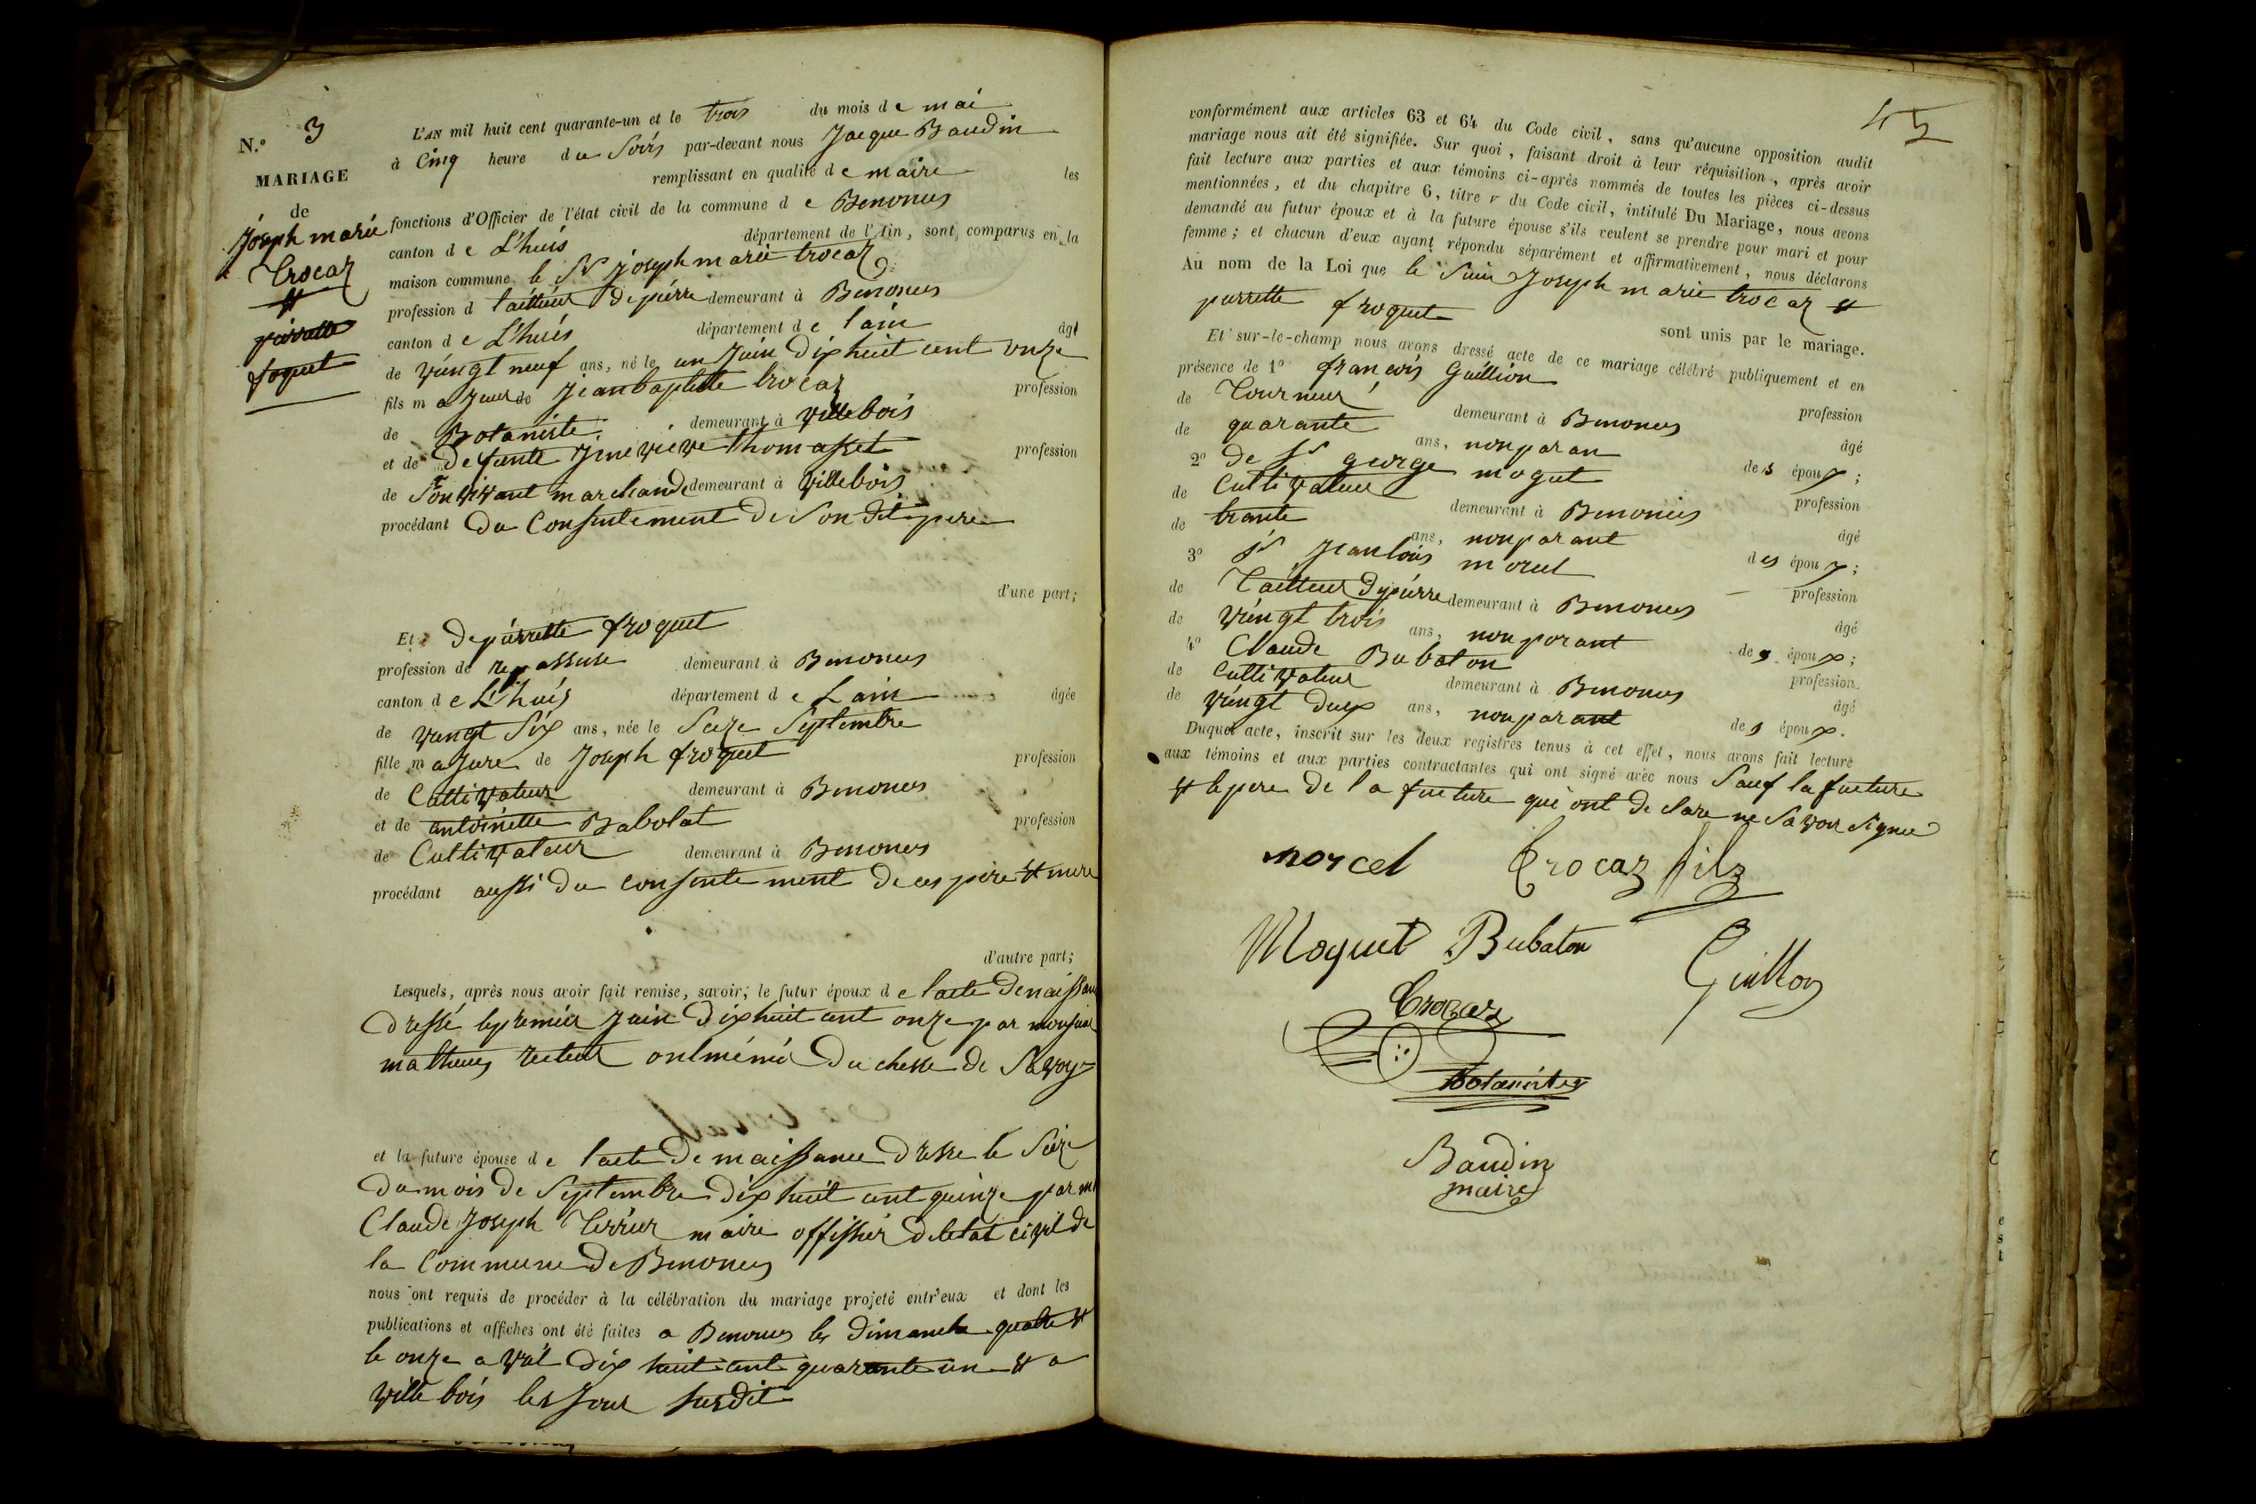 N.° 3
MARIAGE
de
Joseph marie
trocaz
et
pierrette
froquet
L'AN mil huit cent quarante-un et le trois du mois de mai
à Cinq heure du Soirs par-devant nous Jacque Baudin
remplissant en qualité de maire les
fonctions d'Officier de l'état civil de la commune de Benonces
canton de L'huis département de l'Ain, sont comparus en la
maison commune le Sr joseph marie trocaz
profession d tailleur de pierre demeurant à Benonces
canton de L'huis département de l'ain âgé
de vingt neuf ans, né le un Juin dixhuit cent onze
fils majeur de Jeanbaptiste trocaz profession
de Botaniste demeurant à villebois
et de defunte Jinevieve thomasset profession
de Son vivant marchande demeurant à villebois
procédant du Consentement de Son dit pere
d'une part;
Et de pierrette froquet
profession de repasseuse demeurant à Benonces
canton de L'huis département de Lain âgée
de vingt Six ans, née le Seize Septembre
fille majeure de Joseph froquet profession
de Cultivateur demeurant à Benonces
et de antoinette Babolat profession
de Cultivateur demeurant à Benonces
procédant aussi du consentement de ces pere et mere
d'autre part;
Lesquels, après nous avoir fait remise, savoir; le futur époux de lacte de naissance
dressé le premier Juin dixhuit cent onze par monsieur
matheus recteur Du chesse de Savoy
et la future épouse de lacte de naissance dresse le Seize
du mois de Septembre dixhuit cent quinze par mr
Claude Joseph Terrier maire offissier deletat civil de
la Commune de Benonces
nous ont requis de procéder à la célébration du mariage projeté entr'eux et dont les
publications et affiches ont été faites a Benonces les dimanche quatre et
le onze avril dix huit cent quarante un et a
ville bois les Jour susdit
45
conformément aux articles 63 et 64 du Code civil, sans qu'aucune opposition audit
mariage nous ait été signifiée. Sur quoi, faisant droit à leur réquisition, après avoir
fait lecture aux parties et aux témoins ci-après nommés de toutes les pièces ci-dessus
mentionnées, et du chapitre 6, titre V du Code civil, intitulé Du Mariage, nous avons
demandé au futur époux et à la future épouse s'ils veulent se prendre pour mari et pour
femme; et chacun d'eux ayant répondu séparément et affirmativement, nous déclarons
Au nom de la Loi que le Joseph marie trocaz et
pierrette froquet sont unis par le mariage.
Et sur-le-champ nous avons dressé acte de ce mariage célébré publiquement et en
présence de 1° françois Guillion profession
de Tourneur demeurant à Benonces âgé
de quarante ans, non paran des époux;
2° de Sr george moguet profession
de Cultivateur demeurant à Benonces âgé
de trante ans, non parant des époux;
3° Sr Jeanlouis morcel profession
de Tailleur de pierre demeurant à Benonces âgé
de vingt trois ans, non parant des époux;
4° Claude Bubaton profession
de Cultivateur demeurant à Benonces âgé
de vingt deux ans, non parant des époux.
Duquel acte, inscrit sur les deux registres tenus à cet effet, nous avons fait lecture
aux témoins et aux parties contractantes qui ont signé avec nous Sauf la fucture
et le pere de la fucture qui ont declare ne Savoir signer
morcel Trocaz fils
Moguet Bubaton
Guillon
Trocaz
Botaniste
Baudin
maire